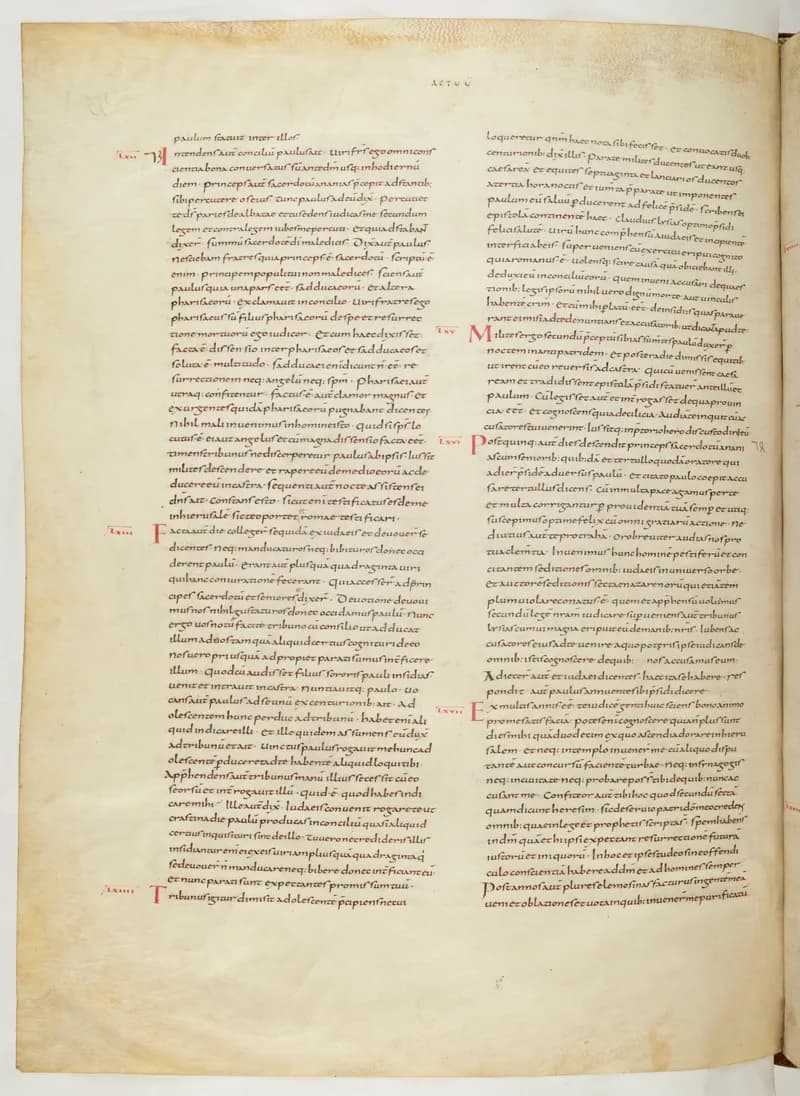 ACTUU
paulum statuit inter illos
LXII Intendens aut̄ conciliū paulus ait · Uiri fr̄s ego omni cons
cientia bona conuersatus sū ante dm̄ usq; in hodiernū
diem · princeps aut̄ sacerdotū ananias p̄cepit adstantib;
sibi percutere os eius · Tunc paulus ad eū dix̄ · Percutiet
te ds̄ paries dealbate et tu sedens iudicas me secundum
legem et contra legem iubes me percuti · Et qui adstabant
dixer̄ · summū sacerdotē dī maledicis · Dix̄ aut̄ paulus
Nesciebam fratres quia princeps ē sacerdotū · scriptū ē
enim · principem populi tui non maledices · sciens aut̄
paulus quia una pars eēt · sadducaeorū · Et altera
pharisaeorū · exclamauit in concilio · Uiri fratres ego
pharisaeus sū filius pharisaeorū de spe et resurrec
tione mortuorū ego iudicor · Et cum haec dixisset
facta ē · dissensio inter pharisaeos et sadducaeos et
soluta ē multitudo · sadducaei eni dicunt n̄ eē · re
surrectionem neq; angelū neq; sp̄m · Pharisaei aut̄
utraq; confitentur · factus ē aut̄ clamor magnus et
exurgentes quidā pharisaeorū pugnabant dicentes
Nihil mali inuenimus in homine isto · quid si sp̄s lo
cutus ē · ei aut angelus et cū magna dissensio facta eēt ·
timens tribunus ne discerperetur paulus ab ipsis · Iussit
milites descendere et rapere eū de medio eorū ac de
ducere eū in castra · Sequenti aut̄ nocte assistens ei
dn̄s ait · Constans esto · sicut enī testificatus es de me
in hierusalē · sic te oportet romae testificari ·
LXIII Facta aut̄ die collegert̄ se quidā ex iudaeis et deuouer̄ se
dicentes · neq; manducaturos neq; bibituros donec occi
derent paulū · erant aut̄ plus quā quadraginta uiri
qui hanc coniurationē fecerant · Qui accesser̄ ad prin
cipes sacerdotū et seniores dixer̄ · Deuotione deuoui
mus nos nihil gustaturos donec occidamus paulū · nunc
ergo uos notū facite tribuno cū consilio ut adducat
illum ad uos tamquā aliquid certius cognituri de eo
nos uero priusquā adpropiet parati sumus interficere
illum · Quod cū audisset filius sororis pauli insidias
uenit et intrauit in castra · nuntiauitq; paulo · uo
cans aut̄ paulus ad se unū ex centurionib; ait · Ad
olescentem hunc perduc ad tribunū · habet enī ali
quid indicare illi · et ille quidem assumens eū dux̄
ad tribunū et ait · Uinctus paulus rogauit me hunc ad
olescentē p̄ducere ad te habentē aliquid loqui tibi ·
Apphendens aut̄ tribunus manū illius secessit cū eo
seorsū et int̄rogauit illū · quid ē quod habes indi
care mihi · Ille aut̄ dix̄ · Iudaeis conuenit rogare te ut
crastina die paulū producas in conciliū quasi aliquid
certius inquisituri sint de illo · Tu uero ne credideris illis
insidiantur enī ei ex eis uiri amplius quā quadraginta q̄
se deuouer̄ n̄ manducare neq; bibere donec interficiant eū
et nunc parati sunt expectantes promissum tuū ·
LXIIII Tribunus igitur dimisit adolescentē p̄cipiens ne cui
loqueretur qm̄ haec nota sibi fecisset · et conuocatis duob;
centurionib; dix̄ illis · Parate milites ducentos ut eant usq;
caesarea et equites septuaginta et lancearios ducentos
a tertia hora noctis et iumta p̄parate ut inponentes
paulum eū saluū p̄ducerent ad felicē p̄sidē · scribens ei
epistolā continentē haec · Claudius lysias optimo p̄sidi
felici salutē · Uirū hunc comp̄hensū a iudaeis et incipientē
interfici ab eis · superueniens cū exercitu eripui cognito
quia romanus ē · uolensq; scire causā quā obiciebant illi
deduxi eū in conciliū eorū · quem inueni accusari de quaes
tionib; legis ipsorū nihil uero dignū morte aut uinculis
habentē crim̄ · et cū mihi p̄latū eēt · de insidiis quas paraue
rant ei misi ad te denuntians et accusatorib; ut dicant apud te
LXV Milites ergo secundū p̄ceptū sibi assumtes paulū duxer̄ p̄
noctem in antipatridem · et postera die dimissis equitib;
ut irent cū eo reuersi s̄ ad castra · Qui cū uenissent caesa
ream et tradidissent epistolā p̄sidi statuer̄ ante illū et
paulum · Cū legisset aut̄ et int̄rogasset de qua prouin
cia eēt · et cognoscens quia de cilicia · Audiā te inquit cū ac
cusatores tui uenerint · Iussitq; in p̄torio herodis custodiri eū
LXVI Post quinq; aut̄ dies descendit princeps sacerdotū ananias
cū seniorib; quib;dā et tertullo quodā oratore qui
adier̄ p̄sidē aduersus paulū · et citato paulo coepit accu
sare tertullus dicens · Cū in multa pace agamus per te
et multa corrigantur p̄ prouidentiā tuā semp̄ et ubiq;
suscepimus optime felix cū omni gratiarū actione · ne
diutius aut̄ te protrahā · oro breuiter audias nos pro
tua clemtia · Inuenimus hunc hominē pestiferū et con
citantem seditiones omnib; iudaeis in uniuerso orbe ·
et auctorē seditionis sectae nazarenorū qui etiā tem
plum uiolare conatus ē · quem et app̄hensū uoluimus
secundū legē nr̄am iudicare supueniens aut̄ tribunus
lysias cum ui magna eripuit eū de manib; nr̄is · Iubens ac
cusatores eius ad te uenire a quo poteris ipse iudicans de
omnib; istis cognoscere de quib; nos accusamus eum ·
Adiecer̄ aut̄ et iudaei dicentes · haec ita se habere · res
pondit aut̄ paulus annuente sibi p̄sidi dicere ·
LXVII Ex multis annis eē te iudicē genti huic sciens bono animo
pro me satisfaciā · potes enī cognoscere quia n̄ plus sunt
dies mihi quā duodecim ex quo ascendi adorare in hieru
salem · et neq; in templo inuener̄ me cū aliquo dispu
tantē aut concursū facientē turbae · neq; in synagogis
neq; in ciuitate neq; probare possunt tibi de quib; nunc ac
cusant me · Confiteor aut̄ tibi hoc quod secundū sectā
quam dicunt heresim · sic deseruio patri dō meo credens
omnib; quae in lege et prophetis scripta s̄ · spem habens
in dm̄ quā et hi ipsi expectant resurrectionē futurā
iustorū et iniquorū · In hoc et ipse studeo sine offendi
culo conscientiā habere ad dm̄ et ad homines semper ·
Post annos aut̄ plures elemosinas facturus in gentē meā
ueni et oblationes et uota in quib; inuener̄ me purificatū